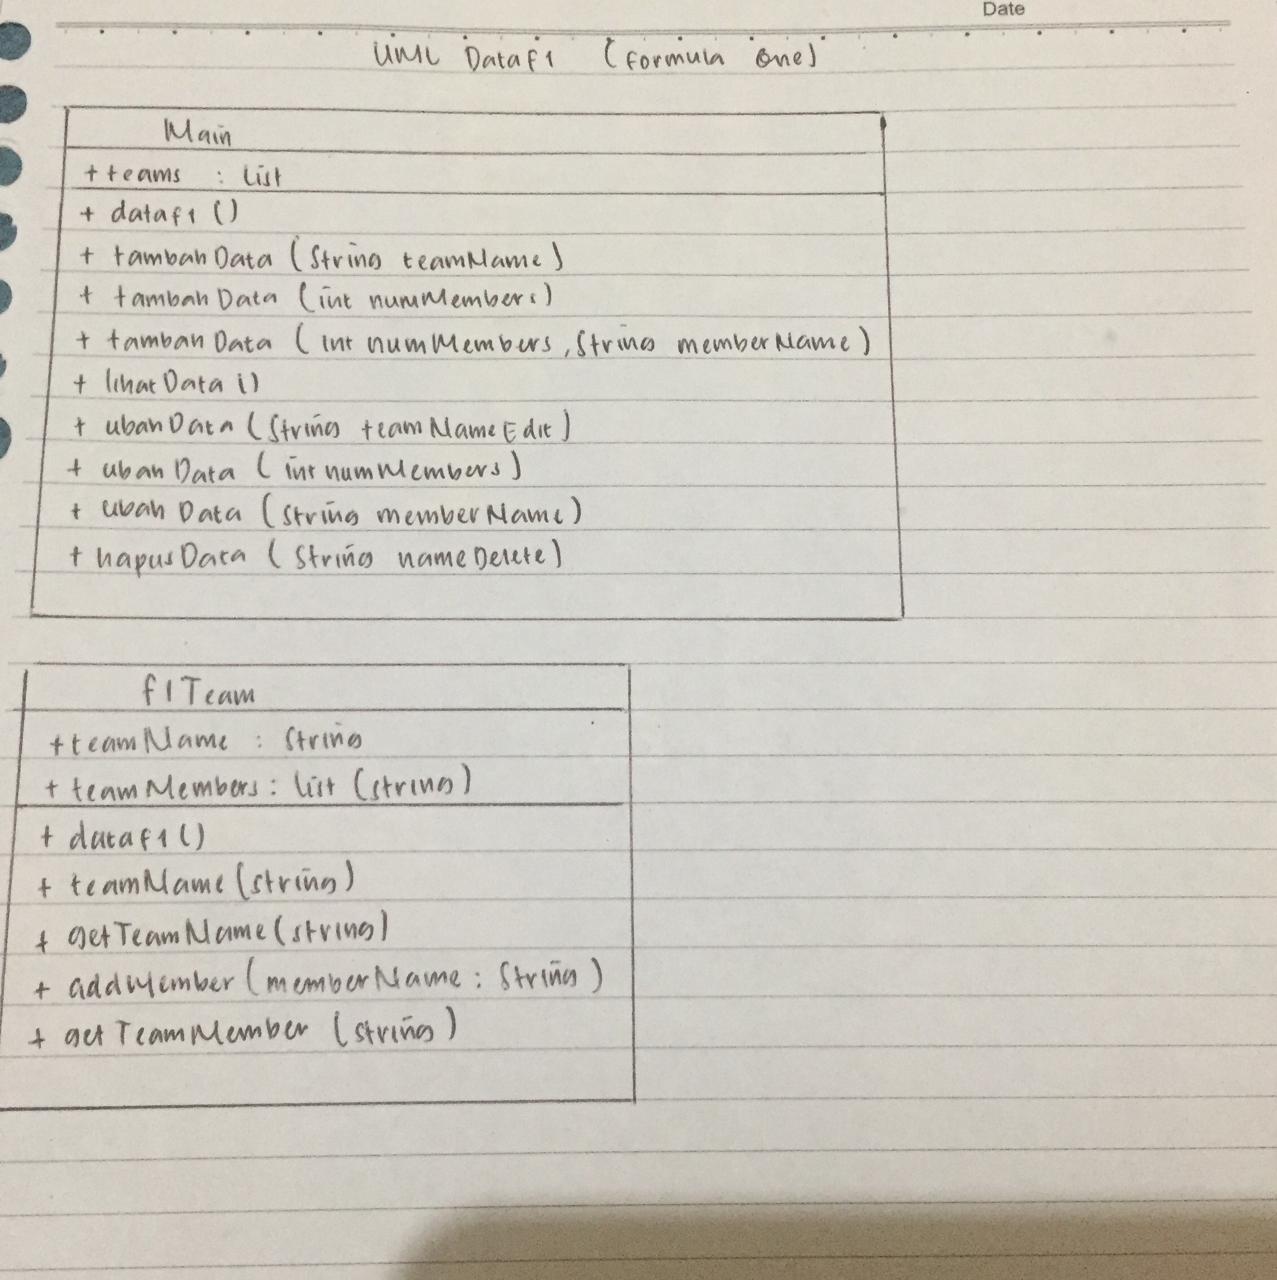 Date
UML Dataf1 (formula one)
Main
+ teams : List
+ dataf1 ()
+ tambahData (String teamName)
+ tambahData (int numMembers)
+ tambahData (int numMembers, String memberName)
+ lihatData ()
+ ubahData (String teamNameEdit)
+ ubahData (int numMembers)
+ ubahData (String memberName)
+ hapusData (String nameDelete)
f1Team
+ teamName : String
+ teamMembers : list (string)
+ dataf1 ()
+ teamName (string)
+ getTeamName (string)
+ addMember (memberName : String)
+ getTeamMember (string)